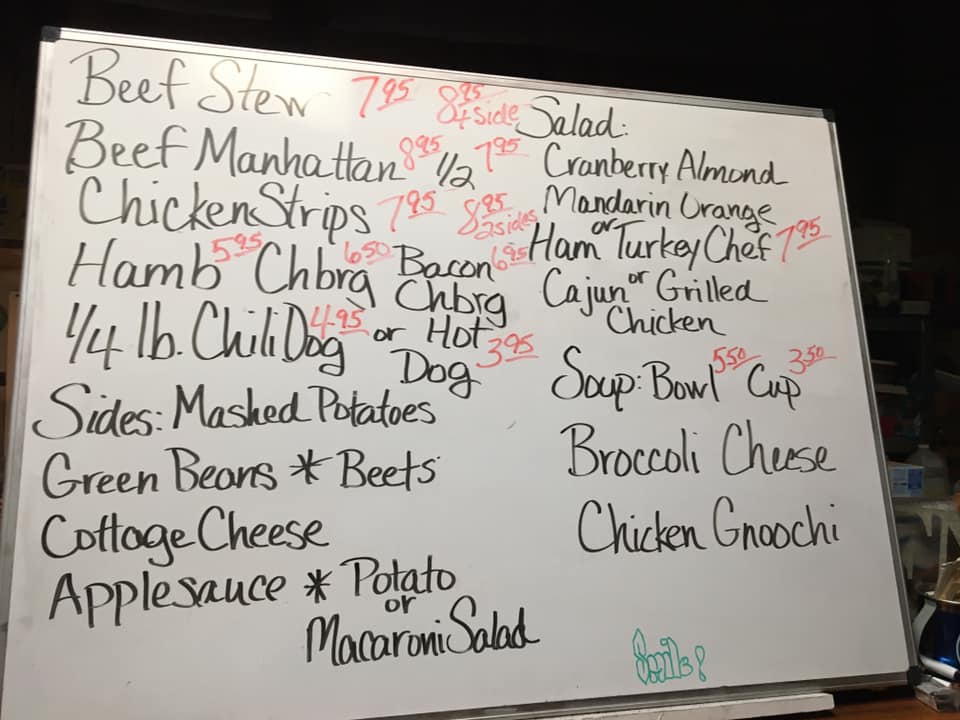 Beef Stew 7.95 8.95 + side
Beef Manhattan 8.95 1/2 7.95
Chicken Strips 7.95 8.95 2 sides
Hamb 5.95 Chbrg 6.50 Bacon Chbrg 6.95
1/4 lb. Chili Dog 4.95 or Hot Dog 3.95
Sides: Mashed Potatoes
Green Beans * Beets
Cottage Cheese
Applesauce * Potato
or
Macaroni Salad
Salad:
Cranberry Almond
Mandarin Orange
Ham or Turkey Chef 7.95
Cajun or Grilled
Chicken
Soup: Bowl 5.50 Cup 3.50
Broccoli Cheese
Chicken Gnoochi